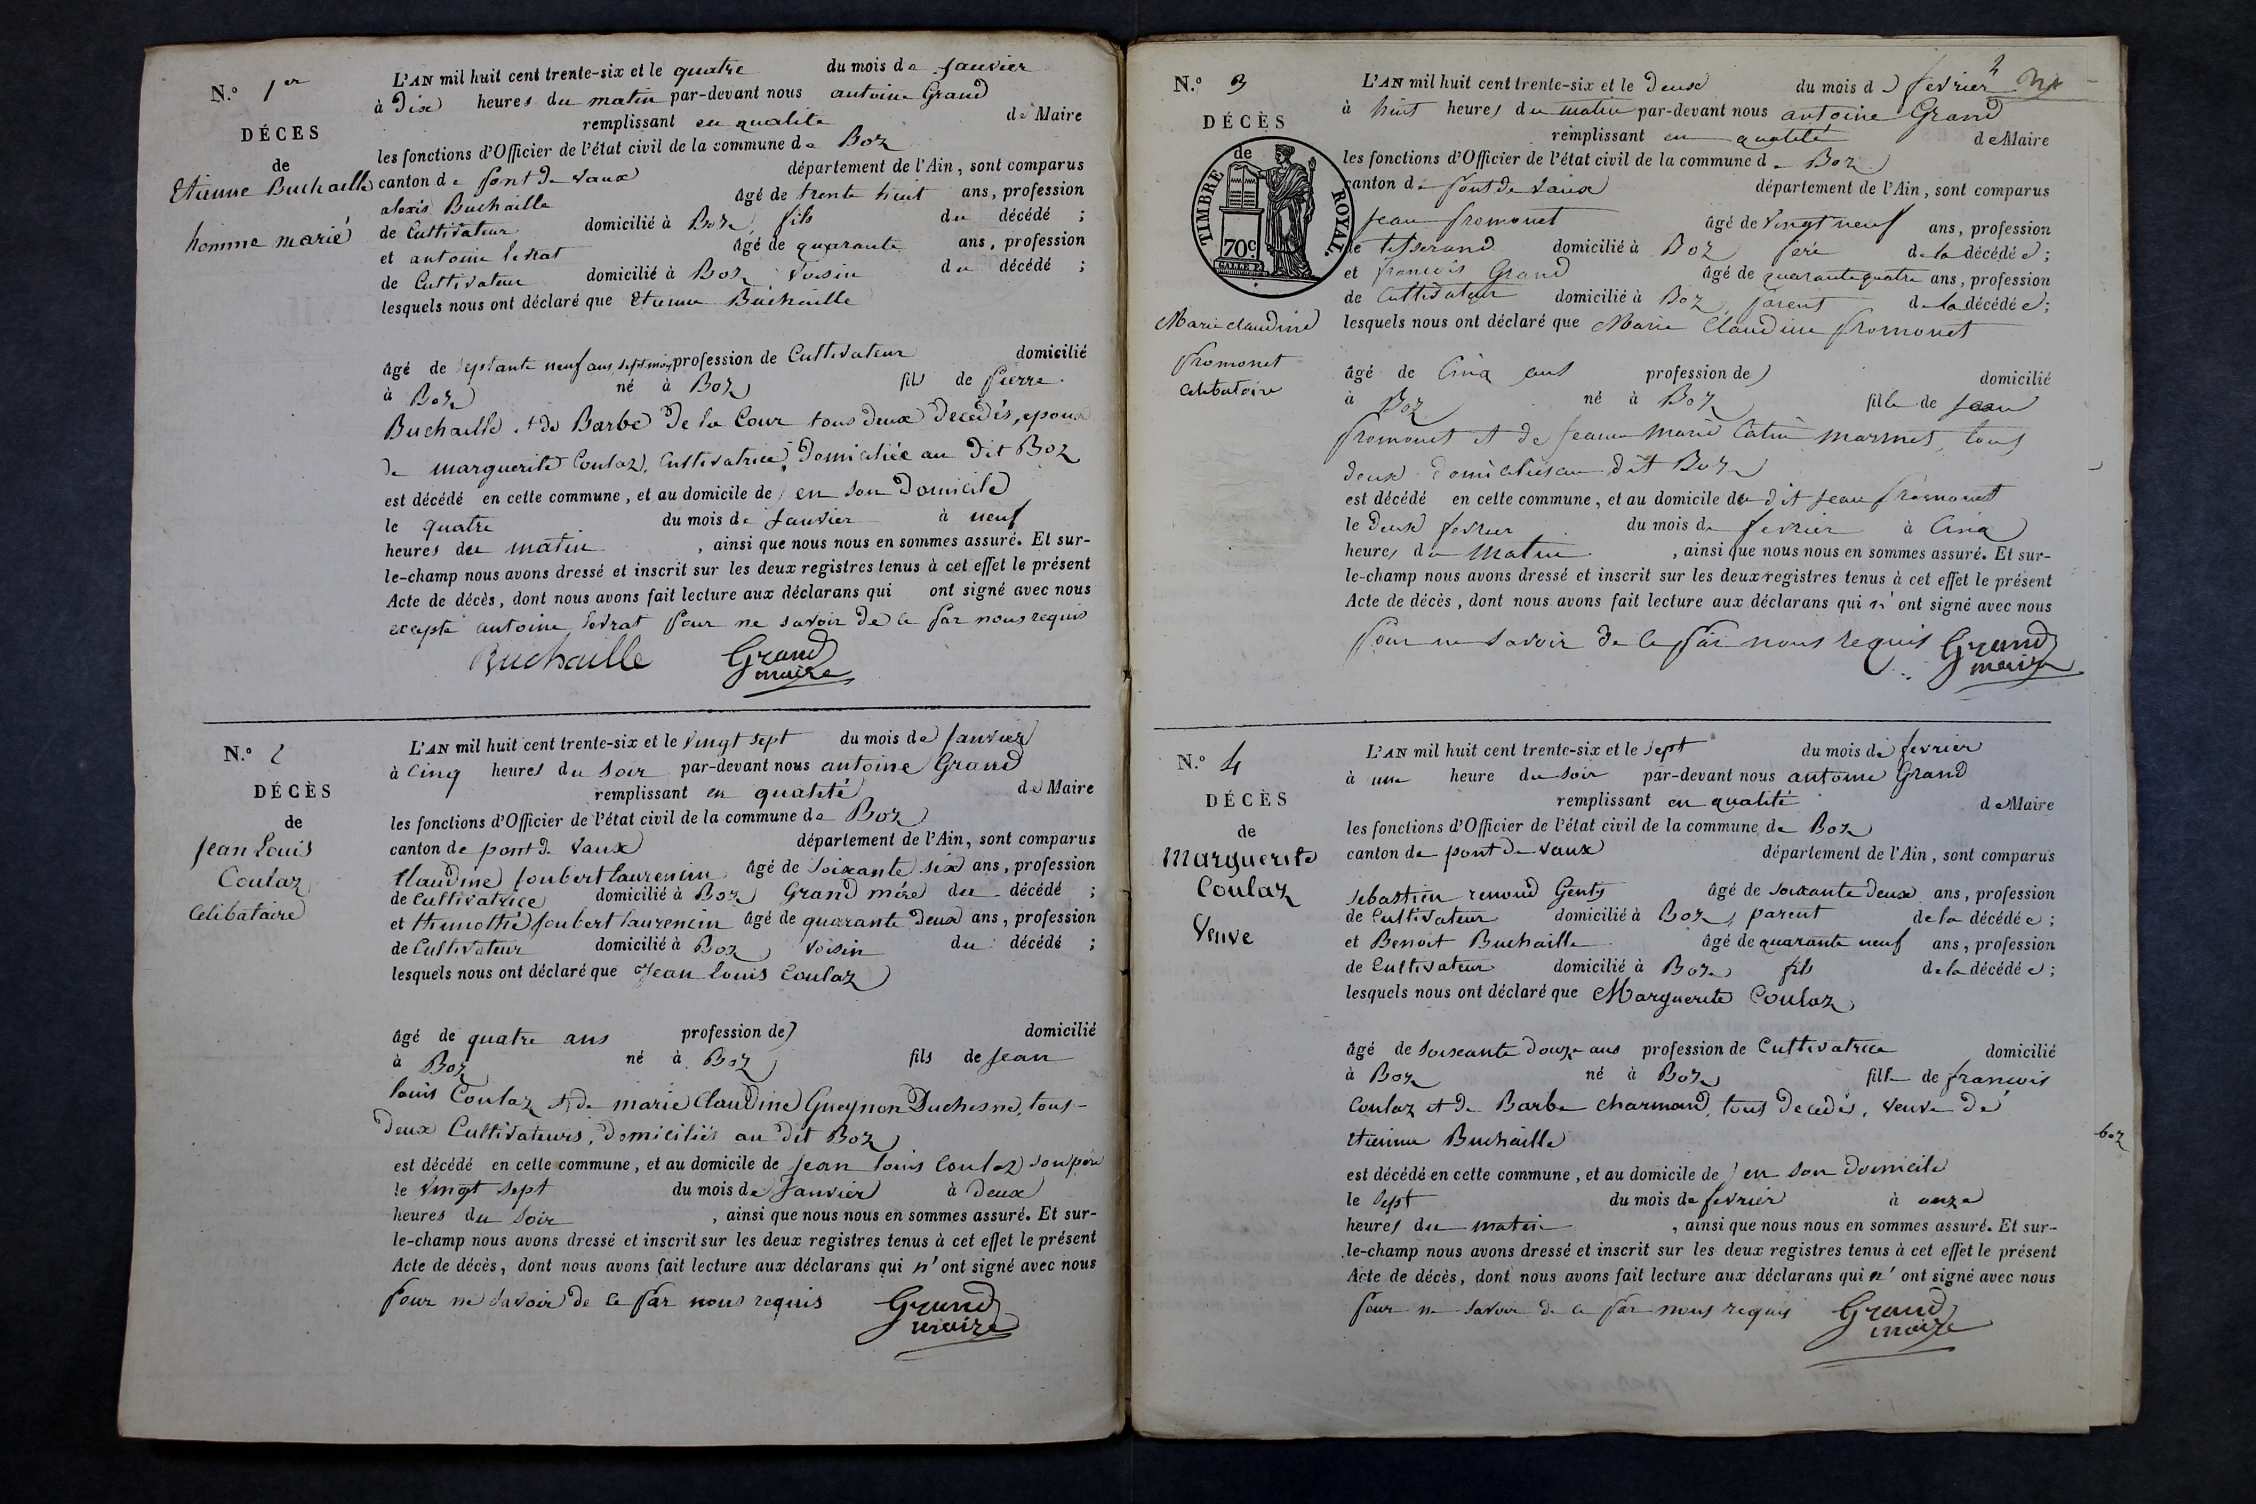 N.º 1er
DÉCES
de
Etienne Buchaille
homme marié
L'AN mil huit cent trente-six et le quatre du mois de Janvier
à Dix heures du matin par-devant nous antoine Grand
remplissant en qualité de Maire
les fonctions d'Officier de l'état civil de la commune de Boz
canton de pont de vaux département de l'Ain, sont comparus
alexis Buchaille âgé de trente huit ans, profession
de Cultivateur domicilié à Boz, fils du décédé ;
et antoine levrat âgé de quarante ans, profession
de Cultivateur domicilié à Boz voisin du décédé ;
lesquels nous ont déclaré que Etienne Buchaille
âgé de septante neuf ans sept mois profession de Cultivateur domicilié
à Boz né à Boz fils de pierre
Buchaille et de Barbe De la Cour tous deux decedés, epoux
de marguerite Coulaz, Cultivatrice, Domiciliée au dit Boz
est décédé en cette commune, et au domicile de en son Domicile
le quatre du mois de Janvier à neuf
heures du matin, ainsi que nous nous en sommes assuré. Et sur-
le-champ nous avons dressé et inscrit sur les deux registres tenus à cet effet le présent
Acte de décès, dont nous avons fait lecture aux déclarans qui ont signé avec nous
excepté antoine levrat pour ne savoir de ce par nous requis
Buchaille Grand
maire
N.º 2
DÉCÈS
de
Jean Louis
Coulaz
Celibataire
L'AN mil huit cent trente-six et le vingt sept du mois de Janvier
à Cinq heures du soir par-devant nous antoine Grand
remplissant en qualité de Maire
les fonctions d'Officier de l'état civil de la commune de Boz
canton de pont de vaux département de l'Ain, sont comparus
Claudine Joubert laurencin âgé de soixante six ans, profession
de Cultivatrice domicilié à Boz Grand mére du décédé ;
et thimothé Joubert laurencin âgé de quarante Deux ans, profession
de Cultivateur domicilié à Boz voisin du décédé ;
lesquels nous ont déclaré que Jean louis Coulaz
âgé de quatre ans profession de domicilié
à Boz né à Boz fils de Jean
louis Coulaz et de marie Claudine Gueynon Duchesne, tous
deux Cultivateurs, domiciliés au dit Boz
est décédé en cette commune, et au domicile de Jean louis Coulaz son pére
le vingt sept du mois de Janvier à Deux
heures du soir, ainsi que nous nous en sommes assuré. Et sur-
le-champ nous avons dressé et inscrit sur les deux registres tenus à cet effet le présent
Acte de décès, dont nous avons fait lecture aux déclarans qui n'ont signé avec nous
pour ne savoir de ce par nous requis Grand
maire
N.º 3
DÉCÈS
de
TIMBRE ROYAL.
70c.
Marie claudine
fromonet
celibatoire
L'AN mil huit cent trente-six et le Deux du mois de fevrier 2
à huit heures du matin par-devant nous antoine Grand
remplissant en qualité de Maire
les fonctions d'Officier de l'état civil de la commune de Boz
canton de pont de vaux département de l'Ain, sont comparus
Jean fromonet âgé de vingt neuf ans, profession
de tisserand domicilié à Boz péré de la décédée ;
et francois Grand âgé de quarante quatre ans, profession
de Cultivateur domicilié à Boz, parent de la décédée ;
lesquels nous ont déclaré que Marie Claudine fromonet
âgé de Cinq ans profession de domicilié
à Boz né à Boz fille de Jean
fromonet et de Jeanne Marie Catin marmet, tous
deux domiciliés au dit Boz
est décédé en cette commune, et au domicile du dit Jean fromonet
le deux fevrier du mois de fevrier à Cinq
heures du Matin, ainsi que nous nous en sommes assuré. Et sur-
le-champ nous avons dressé et inscrit sur les deux registres tenus à cet effet le présent
Acte de décès, dont nous avons fait lecture aux déclarans qui n'ont signé avec nous
pour ne savoir de ce par nous requis Grand
maire
N.º 4
DÉCÈS
de
Marguerite
Coulaz
Veuve
L'AN mil huit cent trente-six et le sept du mois de fevrier
à une heure du soir par-devant nous antoine Grand
remplissant en qualité de Maire
les fonctions d'Officier de l'état civil de la commune de Boz
canton de pont de vaux département de l'Ain, sont comparus
sebastien renoud Gents âgé de soixante deux ans, profession
de Cultivateur domicilié à Boz, parent de la décédée ;
et Benoit Buchaille âgé de quarante neuf ans, profession
de Cultivateur domicilié à Boz fils de la décédée ;
lesquels nous ont déclaré que Marguerite Coulaz
âgé de soixante douze ans profession de Cultivatrice domicilié
à Boz né à Boz fille de francois
Coulaz et de Barbe charmond, tous decedés, veuve de
etienne Buchaille
est décédé en cette commune, et au domicile de en son domicile
le sept du mois de fevrier à onze
heures du matin, ainsi que nous nous en sommes assuré. Et sur-
le-champ nous avons dressé et inscrit sur les deux registres tenus à cet effet le présent
Acte de décès, dont nous avons fait lecture aux déclarans qui n'ont signé avec nous
pour ne savoir de ce par nous requis Grand
maire
boz